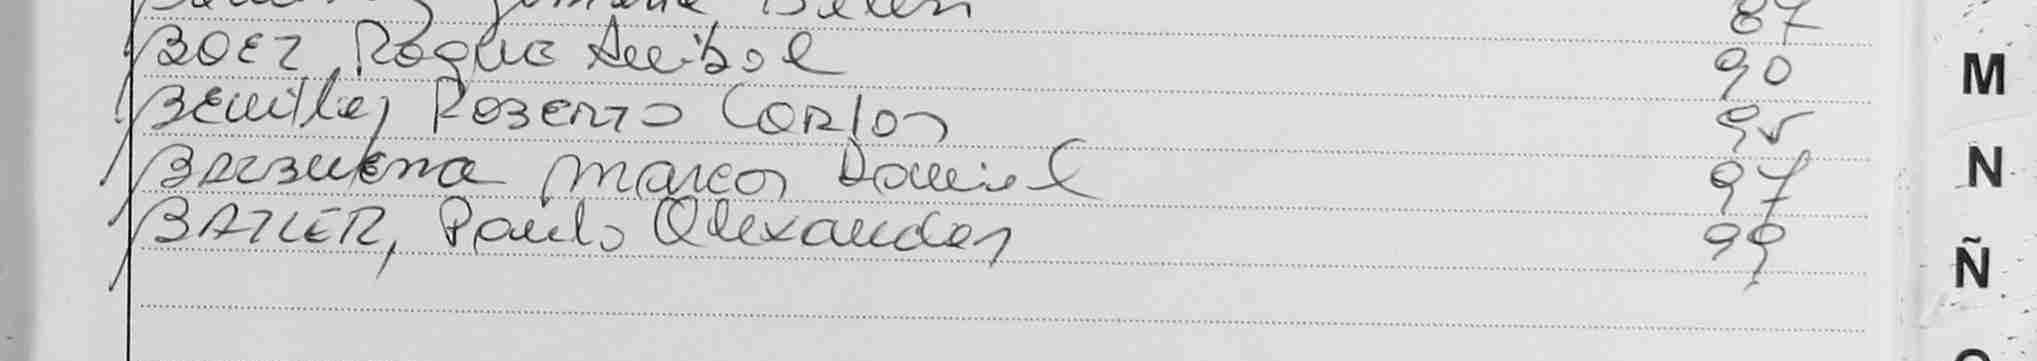 Belen 87
BOEZ, Roque Anibal 90
Roberto Carlos 95
BALBUENA Marcos Daniel 97
BATLER, Paulo Alexander 99
M
N
Ñ